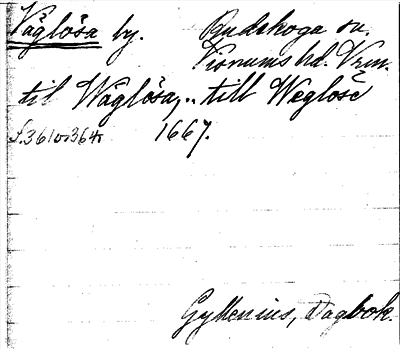 Väglösa by. Rudskoga sn.
Visnums hd. Vrm.
til Wäglösa,.. till Weglöse
s. 361 o. 364. 1667.
Gyllenius, Dagbok.